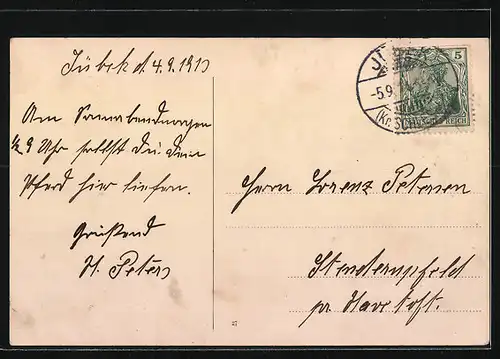 Jübek d. 4.9.1913
Am Sonnabendmorgen
½ 9 Uhr sollst Du Dein
Pferd hier liefern.
Grüßend
H. Peters
5
-5.9.
(Kr. SCHL
REICH
Herrn Lorenz Petersen
Stenderupfeld
pr. Havetoft.